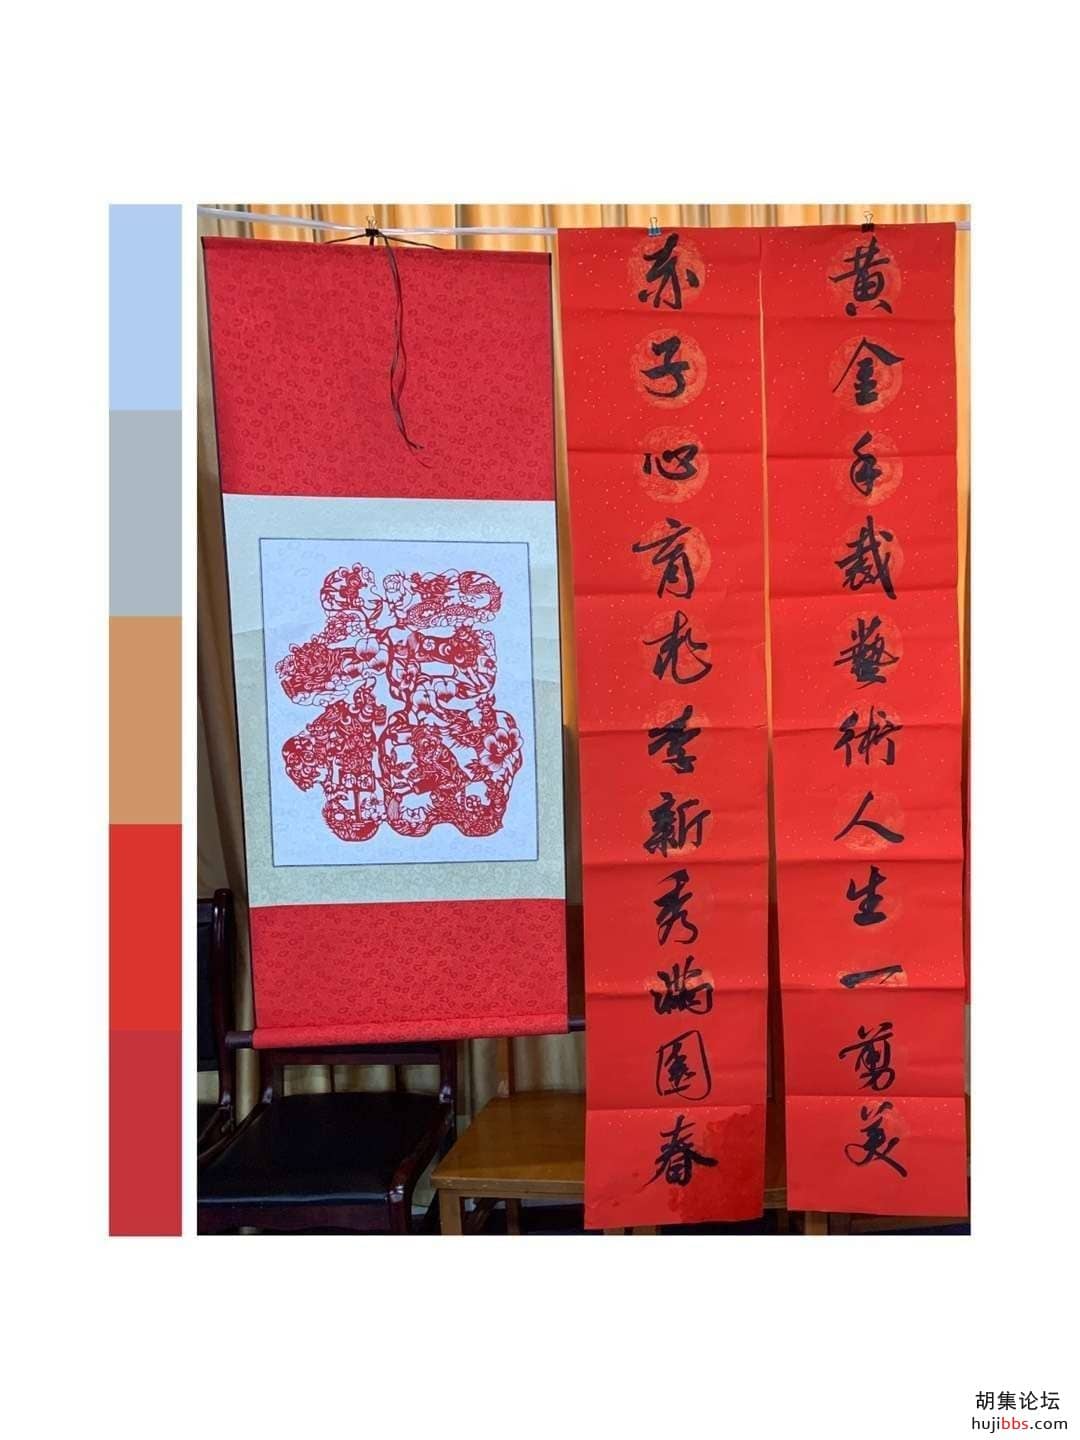 黄金手裁藝術人生一剪美
赤子心育桃李新秀滿園春
福
胡集论坛
hujibbs.com